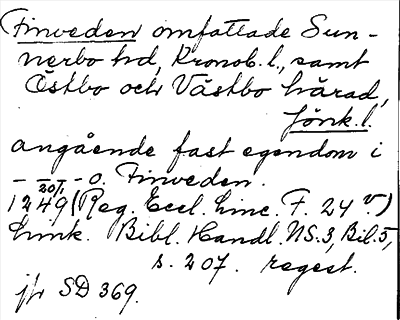 Finveden omfattade Sun-
nerbo hd, Kronob. l., samt
Östbo och Västbo härad,
Jönk. l.
angående fast egendom i
- - - o. Finveden.
20/1
1249 (Reg. Eccl. Linc. F. 24 v.)
Link. Bibl. Handl. NS. 3, Bil. 5,
s. 207. regest.
jfr SD 369.